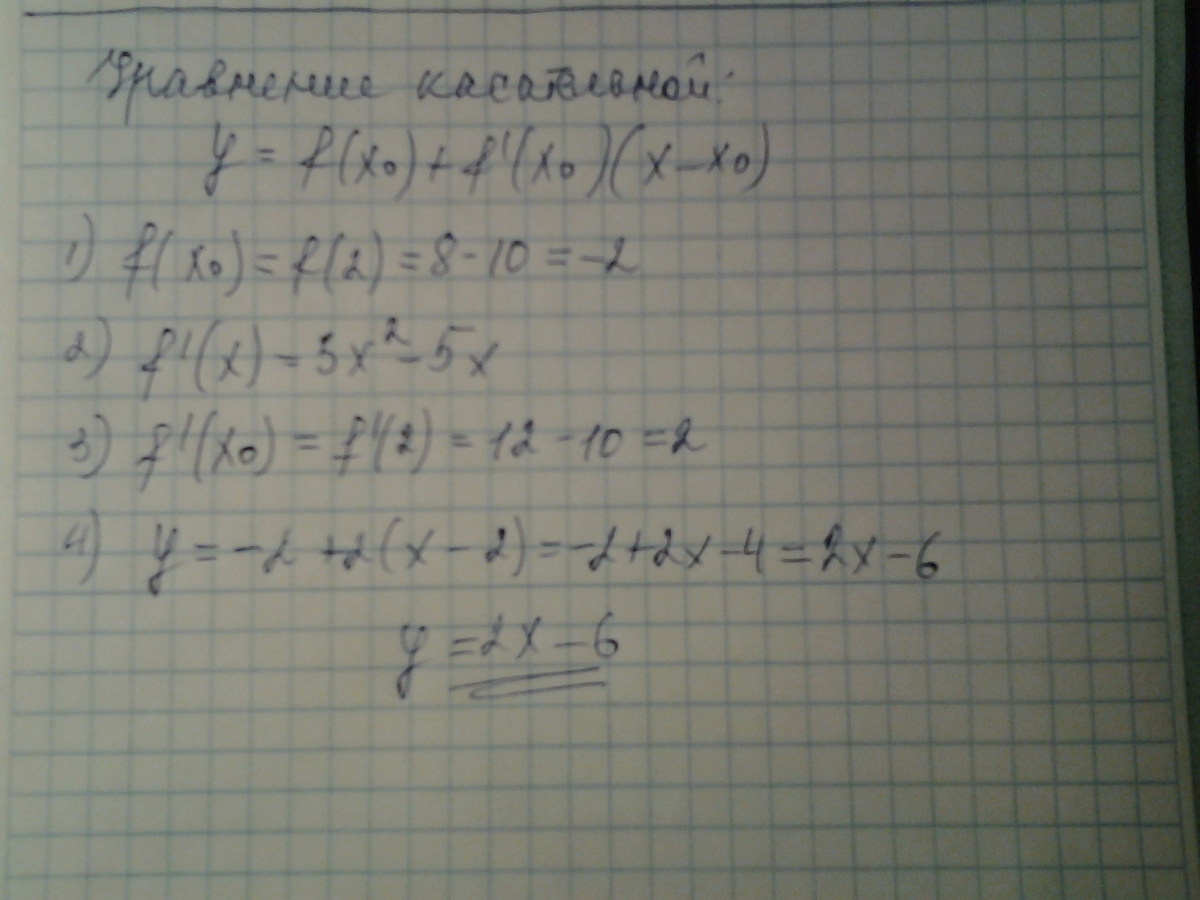 Уравнение касательной:
y = f(x₀) + f'(x₀)(x – x₀)
1) f(x₀) = f(2) = 8 - 10 = -2
2) f'(x) = 3x² - 5x
3) f'(x₀) = f'(2) = 12 - 10 = 2
4) y = -2 + 2(x - 2) = -2 + 2x - 4 = 2x - 6
y = 2x - 6